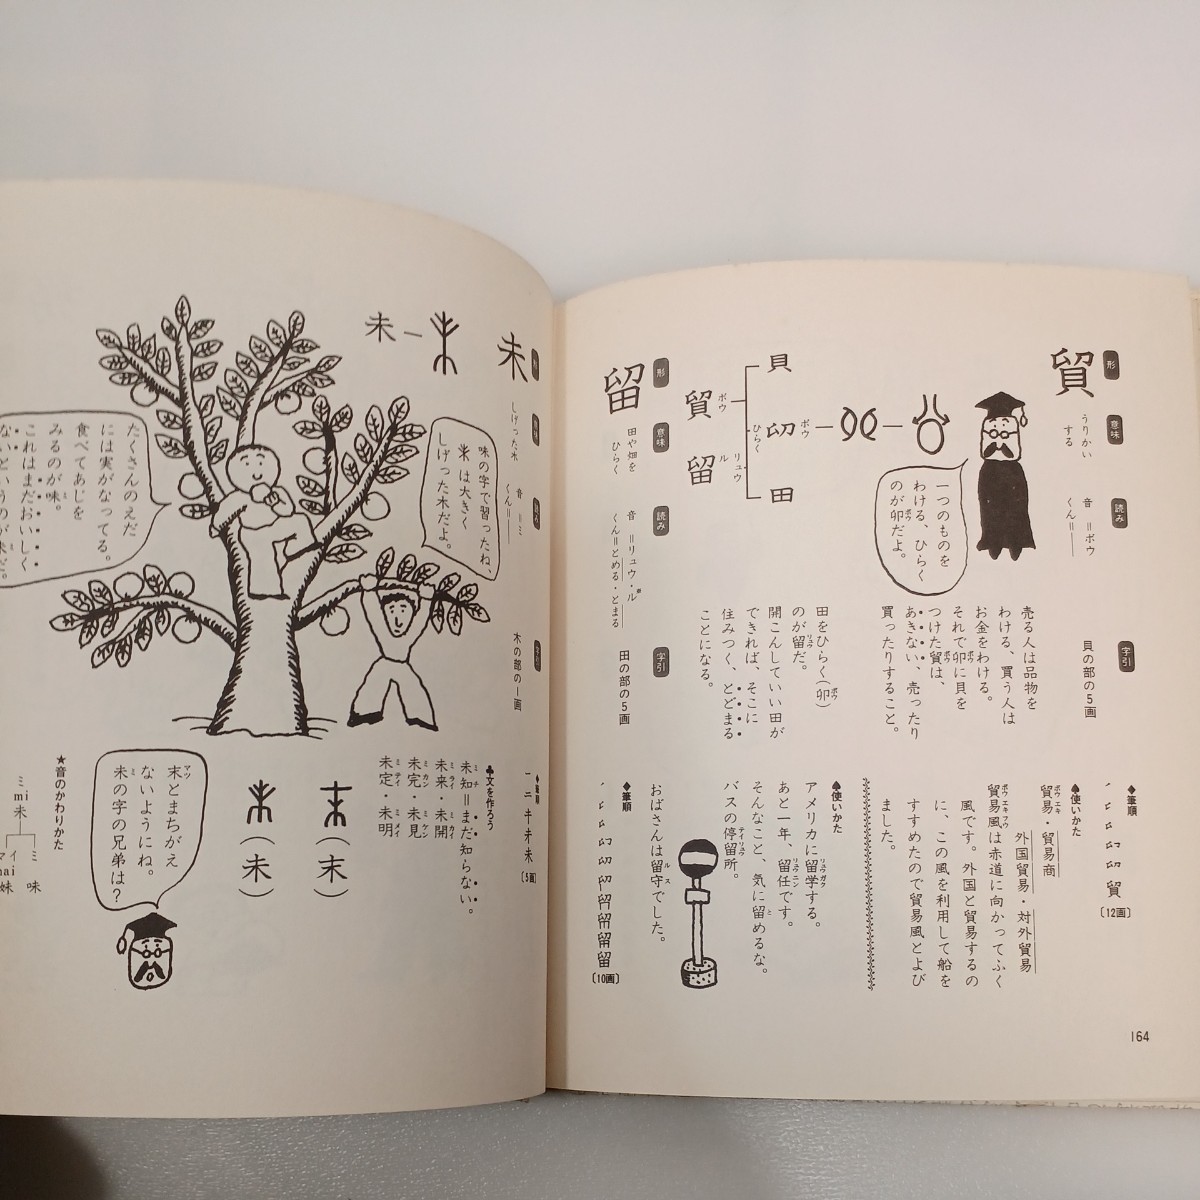 形
貿
意味
うりかい
する
読み
音＝ボウ
くん＝――
字引
貝の部の5画
一つのものを
わける、ひらく
のが卯だよ。
ボウ
売る人は品物を
わける、買う人は
お金をわける。
それで卯に貝を
ボウ
つけた貿は、
ボウ
あきない、売ったり
買ったりすること。
◆筆順
貿
〔12画〕
♠使いかた
貿易・貿易商
ボウエキ
外国貿易・対外貿易
貿易風は赤道に向かってふく
ボウエキフウ
風です。外国と貿易するの
に、この風を利用して船を
すすめたので貿易風とよび
ました。
貝
ボウ
田
ボウ
貿
ひらく
リュウ
ル
留
形
留
意味
田や畑を
ひらく
読み
音＝リュウ・ル
くん＝とめる・とまる
字引
田の部の5画
田をひらく(卯)
ボウ
のが留だ。
リュウ
開こんしていい田が
できれば、そこに
住みつく、とどまる
ことになる。
♠使いかた
アメリカに留学する。
リュウガク
あと一年、留任です。
リュウニン
そんなこと、気に留めるな。
と
バスの停留所。
テイリュウ
おばさんは留守でした。
ルス
◆筆順
留
〔10画〕
164
未
しげった木
音＝ミ
くん＝――
字引
木の部の一画
未
味の字で習ったね、
は大きく
しげった木だよ。
たくさんのえだ
には実がなってる。
食べてあじを
みるのが味。
ミ
これはまだおいしく
ないというのが未だ。
ミ
◆筆順
一二キ未未
〔5画〕
♣文を作ろう
未知＝まだ知らない。
ミチ
未来・未開
ミライ ミカイ
未完・未見
ミカン ミケン
未定・未明
ミテイ ミメイ
(末)
(未)
末とまちがえ
マツ
ないようにね。
未の字の兄弟は？
ミ
★音のかわりかた
ミ
mi
未
ミ
味
マイ
mai
妹